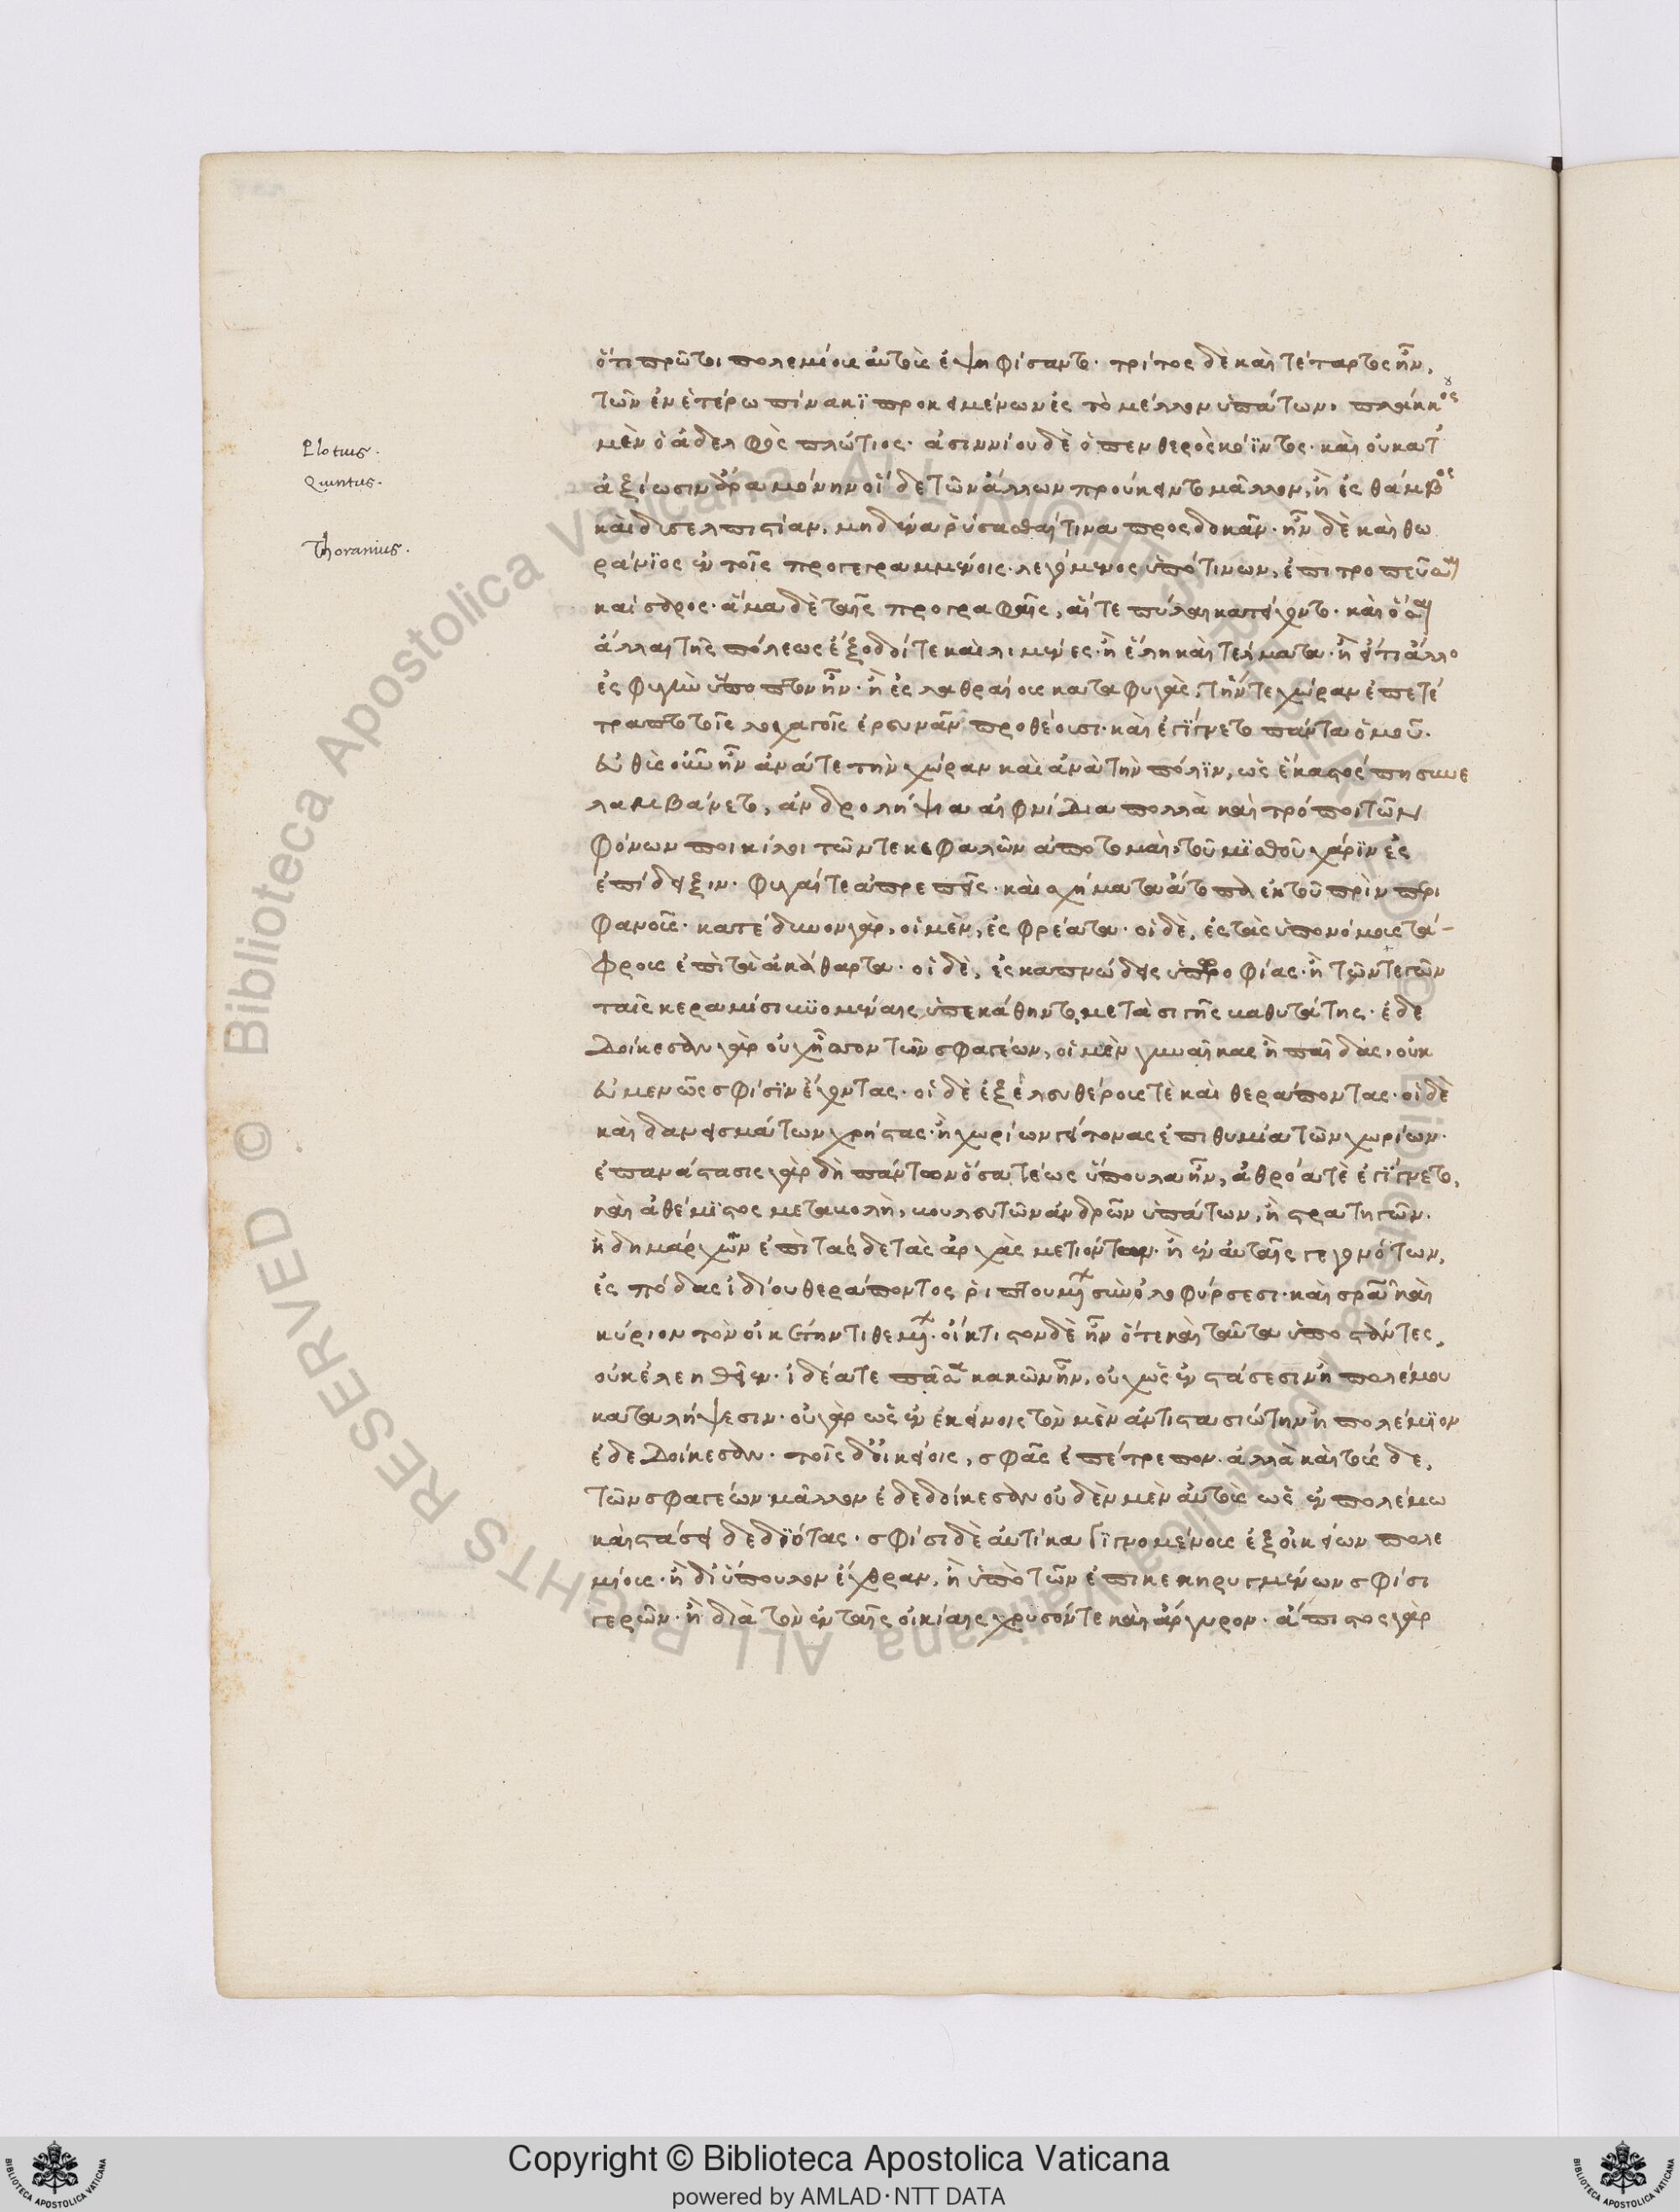 ὅτι πρῶτοι πολεμίους αὐτοὺς ἐψηφίσαντο· τρίτος δὲ καὶ τέταρτος ἦν,
τῶν ἐν ἑτέρω πίνακϊ προκειμένων ἐς τὸ μέλλον ὑπάτων. πλάγκου
μὲν ὁ ἀδελφὸς πλώτιος· ἀσιννίου δὲ ὁ πενθερὸς κοΐντος· καὶ οὐ κατ'
ἀξίωσιν ἄρα μόνην οἵδε τῶν ἄλλων προύκειντο μᾶλλον, ἢ ἐς θάμβος
καὶ δυσελπιστίαν, μηδένα ῥύσασθαί τινα προσδοκᾶν· ἦν δὲ καὶ θω
ράνϊος ἐν τοῖς προγεγραμμένοις· λεγόμενος ὑπό τινων, ἐπιτροπεῦσαι
καίσαρος· ἅμα δὲ ταῖς προγραφαῖς, αἵ τε πύλαι κατείχοντο· καὶ ὅσαι
ἄλλαι τῆς πόλεως ἔξοδοί τε καὶ λιμένες· ἢ ἕλη καὶ τέλματα· ἢ εἴ τι ἄλλο
ἐς φυγὴν ὕποπτον ἦν· ἢ ἐς λαθραίους καταφυγὰς, τήν τε χώραν ἐπετέ
τραπτο τοῖς λοχαγοῖς ἐρευνᾶν προθέουσι· καὶ ἐγίγνετο πάντα ὁμοῦ.
εὐθὺς οὖν ἦν ἀνά τε τὴν χώραν καὶ ἀνὰ τὴν πόλϊν, ὡς ἕκαστός πη συνε
λαμβάνετο, ἀνδρολήψια αἰφνίδια πολλὰ καὶ τρόποι τῶν
φόνων ποικίλοι τῶν τε κεφαλῶν ἀποτομαὶ, τοῦ μϊσθοῦ χάρϊν ἐς
ἐπίδειξιν· φυγαί τε ἀπρεπεῖς· καὶ σχήματα ἄτοπα ἐκ τοῦ πρὶν περι
φανοῦς· κατέδυνον γὰρ, οἱ μὲν, ἐς φρέατα· οἱ δὲ, ἐς τὰς ὑπονόμους τά-
φρους ἐπὶ τὰ ἀκάθαρτα· οἱ δὲ, ἐς καπνώδεις ὑπωροφίας· ἢ τῶν τεγῶν
ταῖς κεραμίσι κυομέναις ὑπεκάθηντο, μετὰ σιγῆς βαθυτάτης· ἐδε
δοίκεσαν γὰρ οὐχ ἧσσον τῶν σφαγέων, οἱ μὲν γυναῖκας ἢ παῖδας, οὐκ
εὐμενῶς σφίσϊν ἔχοντας· οἱ δὲ ἐξελευθέρους τὲ καὶ θεράποντας· οἱ δὲ
καὶ δανεισμάτων χρήστας· ἢ χωρίων γείτονας ἐπιθυμία τῶν χωρίων·
ἐπανάστασις γὰρ δὴ πάντων ὅσα τέως ὕπουλα ἦν, ἀθρόα τὲ ἐγίγνετο,
καὶ ἀθέμϊστος μεταβολὴ, βουλευτῶν ἀνδρῶν ὑπάτων, ἢ στρατηγῶν.
ἢ δημάρχων ἐπὶ τάς δε τὰς ἀρχὰς μετιόντων· ἢ ἐν αὐταῖς γεγονότων,
ἐς πόδας ἰδίου θεράποντος ῥιπτουμένων σὺν ὀλοφύρσεσι· καὶ σωτῆρα καὶ
κύριον τὸν οἰκέτην τιθεμένων· οἴκτιστον δὲ ἦν ὅτε καὶ ταῦτα ὑποστάντες,
οὐκ ἐλεηθεῖεν· ἰδέα τε πᾶσα κακῶν ἦν, οὐχ ὡς ἐν στάσεσιν ἢ πολέμου
καταλήψεσιν· οὐ γὰρ ὡς ἐν ἐκείνοις τὸν μὲν ἀντιστασιώτην ἢ πολέμϊον
ἐδεδοίκεσαν· τοῖς δ' οἰκείοις, σφᾶς ἐπέτρεπον· ἀλλὰ καὶ τούς δε,
τῶν σφαγέων μᾶλλον ἐδεδοίκεσαν οὐδὲν μὲν αὐτοὺς ὡς ἐν πολέμω
καὶ στάσει δεδϊότας· σφίσι δὲ αὐτίκα γϊγνομένους ἐξ οἰκείων πολε
μίους· ἢ δι' ὕπουλον ἔχθραν, ἢ ὑπὸ τῶν ἐπικεκηρυγμένων σφίσι
γερῶν· ἢ διὰ τὸν ἐν ταῖς οἰκίαις χρυσόν τε καὶ ἄργυρον· ἄπιστος γὰρ
Plotius.
Quintus.
Thoranius.
Copyright © Biblioteca Apostolica Vaticana
powered by AMLAD·NTT DATA
© Biblioteca Apostolica Vaticana ALL RIGHTS RESERVED